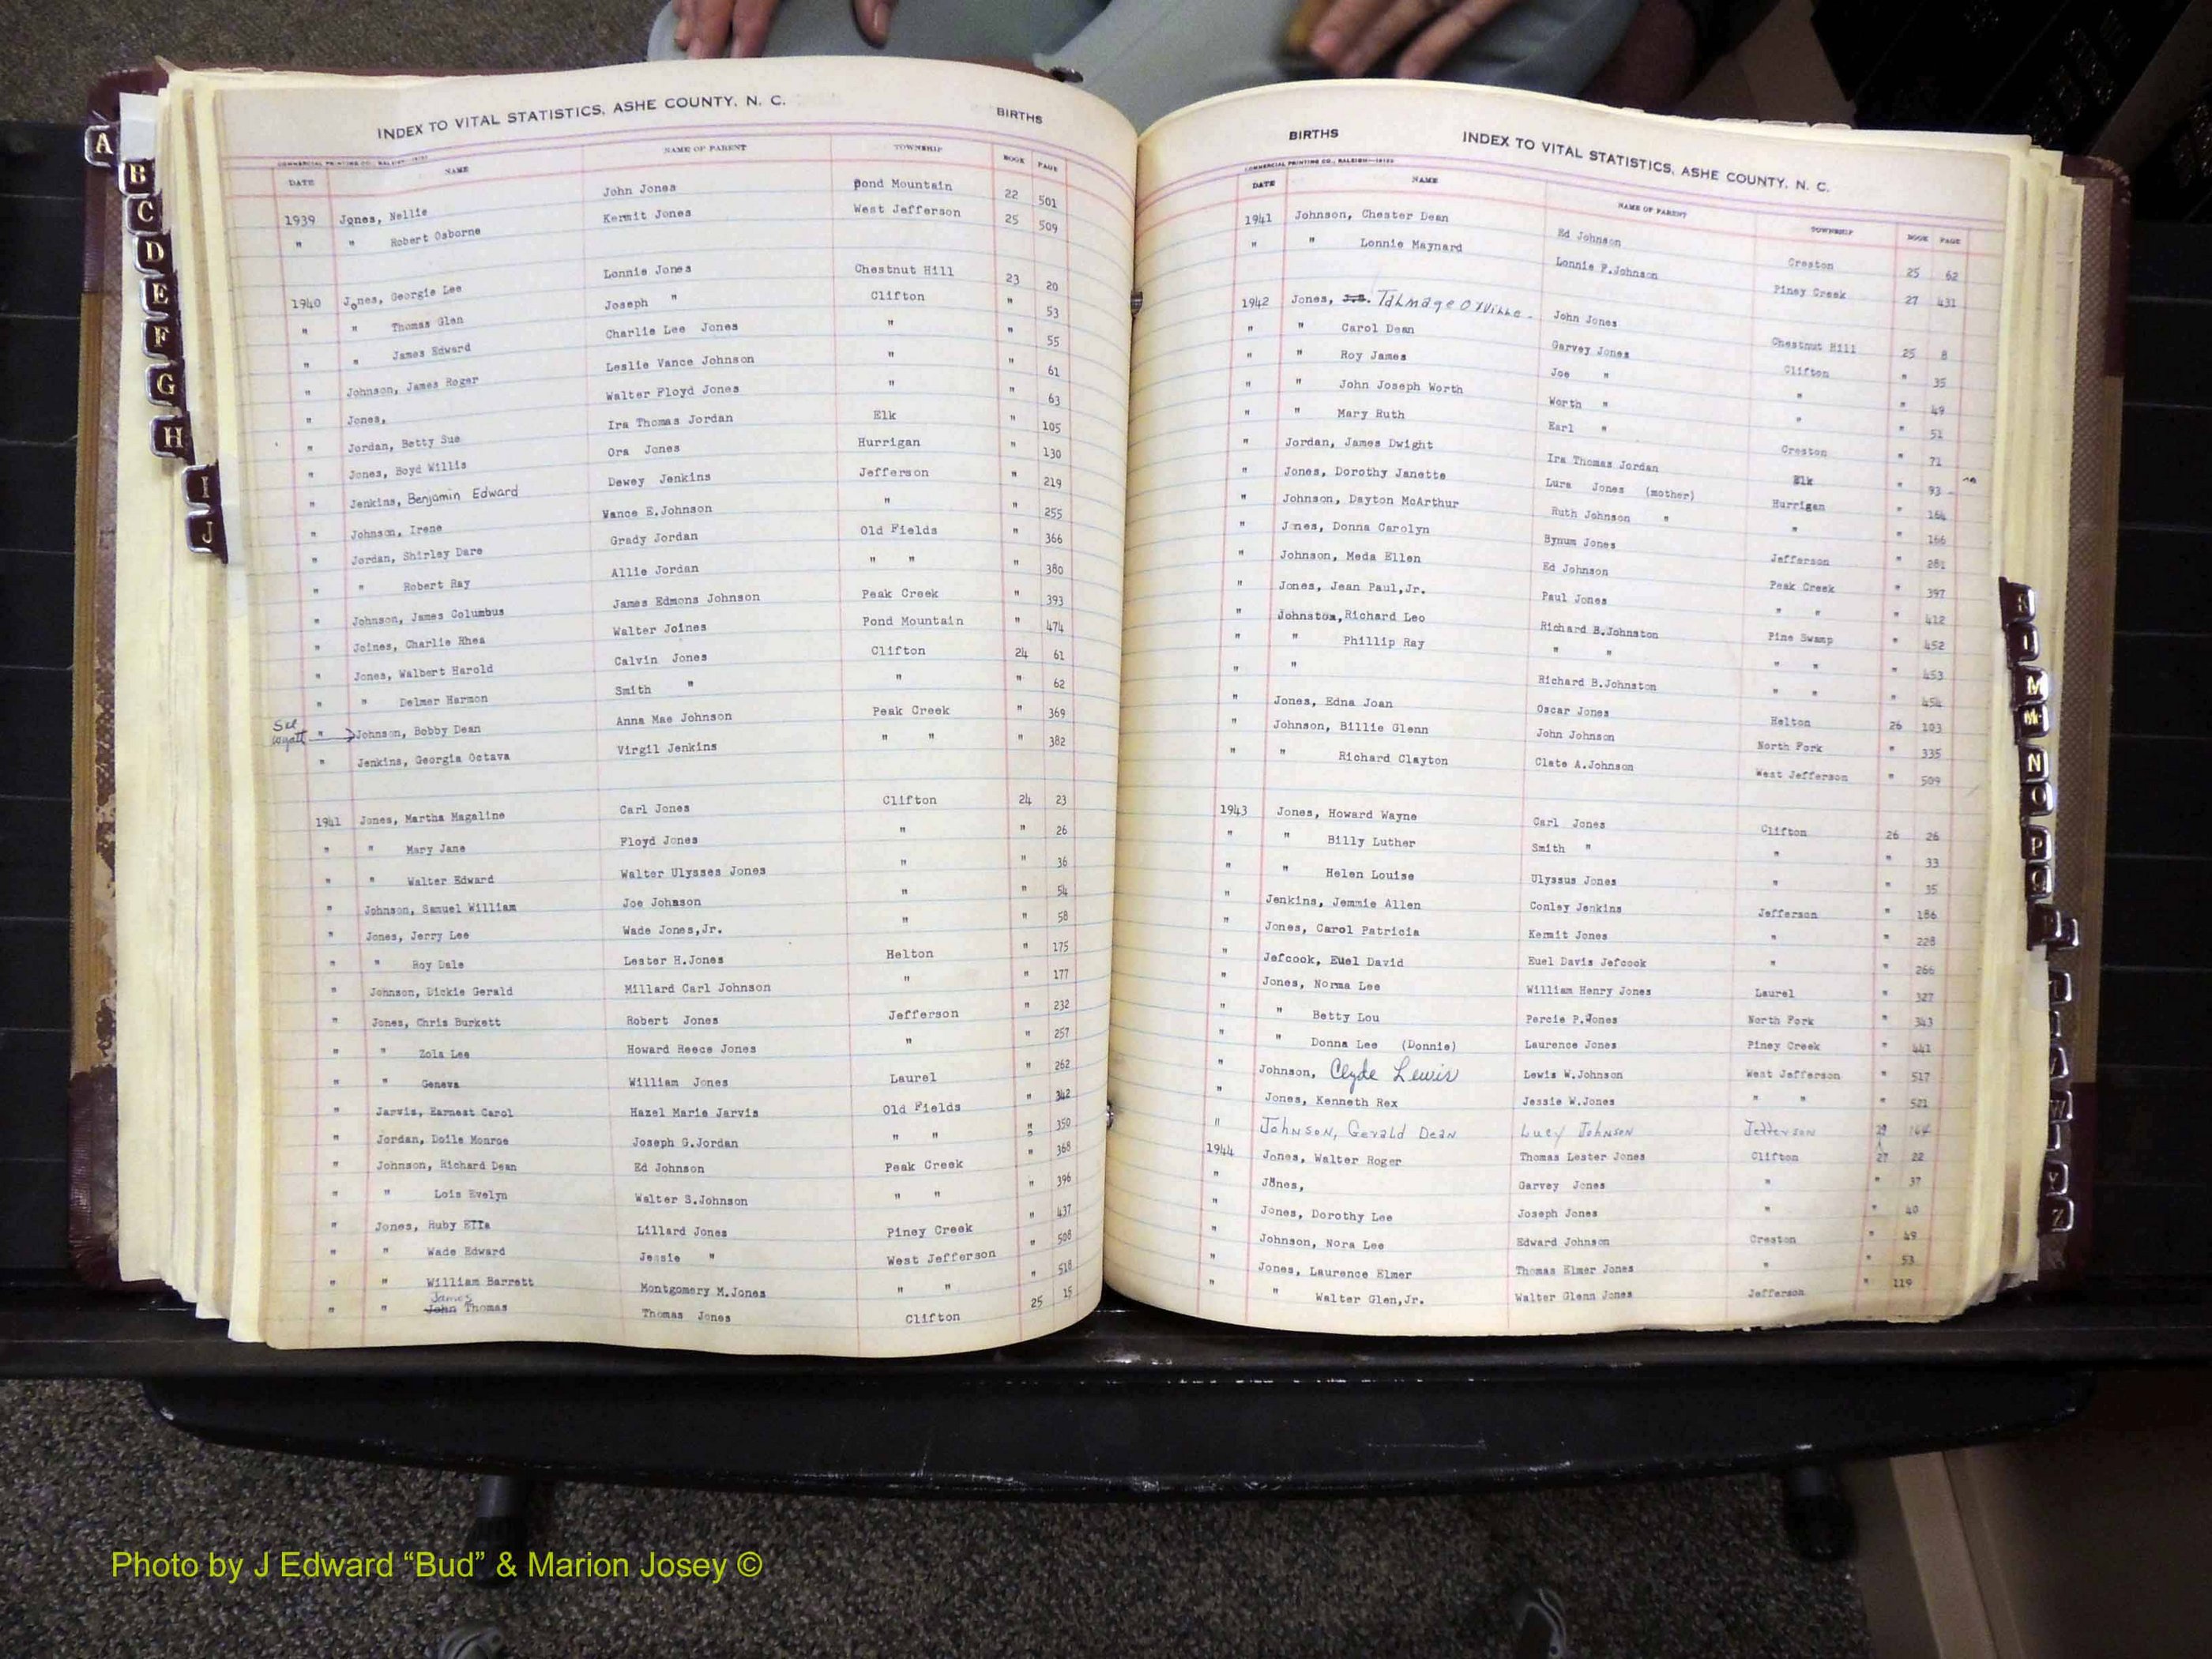 INDEX TO VITAL STATISTICS, ASHE COUNTY, N. C. BIRTHS
COMMERCIAL PRINTING CO., RALEIGH
DATE NAME NAME OF PARENT TOWNSHIP BOOK PAGE
1939 Jones, Nellie John Jones Pond Mountain 22 501
" " Robert Osborne Kermit Jones West Jefferson 25 509
1940 Jones, Georgie Lee Lonnie Jones Chestnut Hill 23 20
" " Thomas Glen Joseph " Clifton " 53
" " James Edward Charlie Lee Jones " " 55
" Johnson, James Roger Leslie Vance Johnson " " 61
" Jones, Walter Floyd Jones " " 63
" Jordan, Betty Sue Ira Thomas Jordan Elk " 105
" Jones, Boyd Willis Ora Jones Hurrigan " 130
" Jenkins, Benjamin Edward Dewey Jenkins Jefferson " 219
" Johnson, Irene Vance E.Johnson " " 255
" Jordan, Shirley Dare Grady Jordan Old Fields " 366
" " Robert Ray Allie Jordan " " " 380
" Johnson, James Columbus James Edmons Johnson Peak Creek " 393
" Joines, Charlie Rhea Walter Joines Pond Mountain " 474
" Jones, Walbert Harold Calvin Jones Clifton 24 61
" " Delmer Harmon Smith " " " 62
See Wyatt " Johnson, Bobby Dean Anna Mae Johnson Peak Creek " 369
" Jenkins, Georgia Octava Virgil Jenkins " " " 382
1941 Jones, Martha Magaline Carl Jones Clifton 24 23
" " Mary Jane Floyd Jones " " 26
" " Walter Edward Walter Ulysses Jones " " 36
" Johnson, Samuel William Joe Johnson " " 54
" Jones, Jerry Lee Wade Jones,Jr. " " 58
" " Roy Dale Lester H.Jones Helton " 175
" Johnson, Dickie Gerald Millard Carl Johnson " " 177
" Jones, Chris Burkett Robert Jones Jefferson " 232
" " Zola Lee Howard Reece Jones " " 257
" " Geneva William Jones Laurel " 262
" Jarvis, Earnest Carol Hazel Marie Jarvis Old Fields " 342
" Jordan, Doile Monroe Joseph G.Jordan " " " 350
" Johnson, Richard Dean Ed Johnson Peak Creek " 368
" " Lois Evelyn Walter S.Johnson " " " 396
" Jones, Ruby Etta Lillard Jones Piney Creek " 437
" " Wade Edward Jessie " West Jefferson " 508
" " William Barrett Montgomery M.Jones " " " 518
James
" " John Thomas Thomas Jones Clifton 25 15
BIRTHS INDEX TO VITAL STATISTICS, ASHE COUNTY, N. C.
COMMERCIAL PRINTING CO., RALEIGH
DATE NAME NAME OF PARENT TOWNSHIP BOOK PAGE
1941 Johnson, Chester Dean Ed Johnson Creston 25 62
" " Lonnie Maynard Lonnie F.Johnson Piney Creek 27 431
1942 Jones, Talmage Orville John Jones Chestnut Hill 25 8
" " Carol Dean Garvey Jones Clifton " 35
" " Roy James Joe " " " 49
" " John Joseph Worth Worth " " " 51
" " Mary Ruth Earl " Creston " 71
" Jordan, James Dwight Ira Thomas Jordan Elk " 93
" Jones, Dorothy Janette Lura Jones (mother) Hurrigan " 164
" Johnson, Dayton McArthur Ruth Johnson " " " 166
" Jones, Donna Carolyn Bynum Jones Jefferson " 281
" Johnson, Meda Ellen Ed Johnson Peak Creek " 397
" Jones, Jean Paul,Jr. Paul Jones " " " 412
" Johnston,Richard Leo Richard B.Johnston Pine Swamp " 452
" " Phillip Ray " " " " " 453
" " Richard B.Johnston " " " 454
" Jones, Edna Joan Oscar Jones Helton 26 103
" Johnson, Billie Glenn John Johnson North Fork " 335
" " Richard Clayton Clate A.Johnson West Jefferson " 509
1943 Jones, Howard Wayne Carl Jones Clifton 26 26
" " Billy Luther Smith " " " 33
" " Helen Louise Ulyssus Jones " " 35
" Jenkins, Jemmie Allen Conley Jenkins Jefferson " 186
" Jones, Carol Patricia Kermit Jones " " 228
" Jefcook, Euel David Euel Davis Jefcook " " 266
" Jones, Norma Lee William Henry Jones Laurel " 327
" " Betty Lou Percie P.Jones North Fork " 343
" " Donna Lee (Donnie) Laurence Jones Piney Creek " 441
" Johnson, Clyde Lewis Lewis W.Johnson West Jefferson " 517
" Jones, Kenneth Rex Jessie W.Jones " " " 521
" Johnson, Gerald Dean Lucy Johnson Jefferson 29 164
1944 Jones, Walter Roger Thomas Lester Jones Clifton 27 22
" Jones, Garvey Jones " " 37
" Jones, Dorothy Lee Joseph Jones " " 40
" Johnson, Nora Lee Edward Johnson Creston " 49
" Jones, Laurence Elmer Thomas Elmer Jones " " 53
" " Walter Glen,Jr. Walter Glenn Jones Jefferson " 119
A
B
C
D
E
F
G
H
I
J
M
N
O
P
W
Z
Photo by J Edward “Bud” & Marion Josey ©